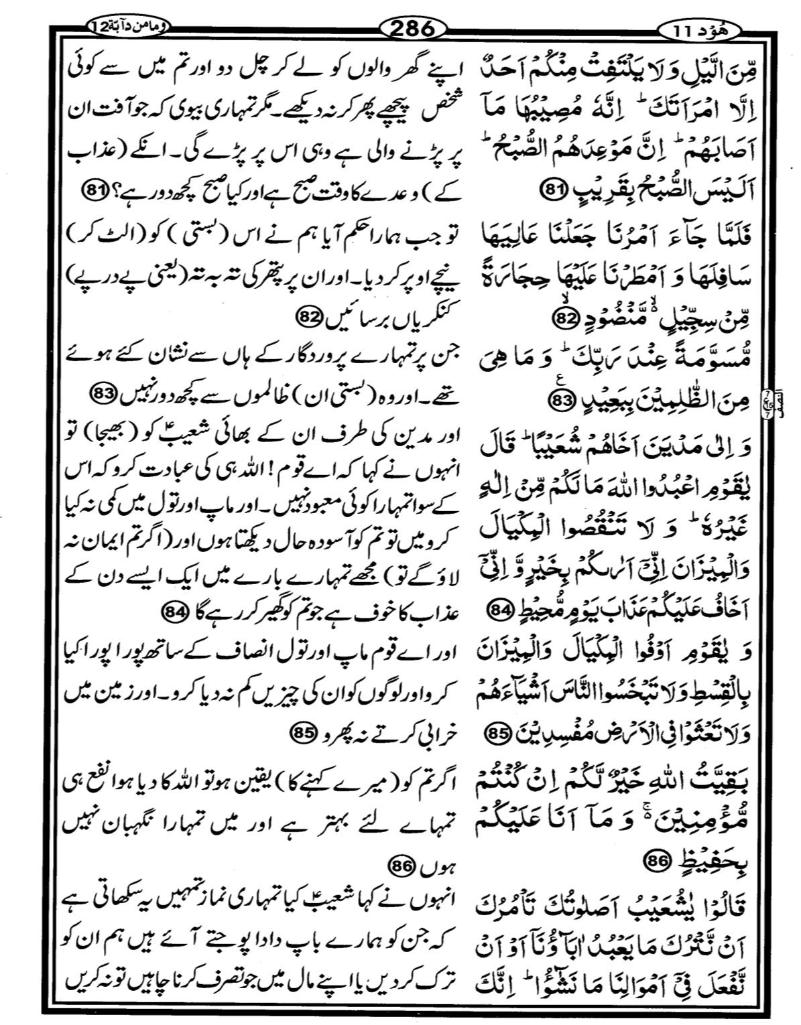 هُوْد 11
286
وما من دآبة 12
مِّنَ الَّيْلِ وَ لَا يَلْتَفِتْ مِنْكُمْ اَحَدٌ
اِلَّا امْرَاَتَكَ ؕ اِنَّهٗ مُصِيْبُهَا مَاۤ
اَصَابَهُمْ ؕ اِنَّ مَوْعِدَهُمُ الصُّبْحُ ؕ
اَلَيْسَ الصُّبْحُ بِقَرِيْبٍ 81
فَلَمَّا جَآءَ اَمْرُنَا جَعَلْنَا عَالِيَهَا
سَافِلَهَا وَ اَمْطَرْنَا عَلَيْهَا حِجَارَةً
مِّنْ سِجِّيْلٍ ۙ۬ مَّنْضُوْدٍ ۙ 82
مُّسَوَّمَةً عِنْدَ رَبِّكَ ؕ وَ مَا هِيَ
مِنَ الظّٰلِمِيْنَ بِبَعِيْدٍ ۧ 83
وَ اِلٰى مَدْيَنَ اَخَاهُمْ شُعَيْبًا ؕ قَالَ
يٰقَوْمِ اعْبُدُوا اللّٰهَ مَا لَكُمْ مِّنْ اِلٰهٍ
غَيْرُهٗ ؕ وَ لَا تَنْقُصُوا الْمِكْيَالَ
وَالْمِيْزَانَ اِنِّيْۤ اَرٰىكُمْ بِخَيْرٍ وَّ اِنِّيْۤ
اَخَافُ عَلَيْكُمْ عَذَابَ يَوْمٍ مُّحِيْطٍ 84
وَ يٰقَوْمِ اَوْفُوا الْمِكْيَالَ وَالْمِيْزَانَ
بِالْقِسْطِ وَلَا تَبْخَسُوا النَّاسَ اَشْيَآءَهُمْ
وَلَا تَعْثَوْا فِى الْاَرْضِ مُفْسِدِيْنَ 85
بَقِيَّتُ اللّٰهِ خَيْرٌ لَّكُمْ اِنْ كُنْتُمْ
مُّؤْمِنِيْنَ ۚ۬ وَ مَاۤ اَنَا عَلَيْكُمْ
بِحَفِيْظٍ 86
قَالُوْا يٰشُعَيْبُ اَصَلٰوتُكَ تَاْمُرُكَ
اَنْ نَّتْرُكَ مَا يَعْبُدُ اٰبَآؤُنَاۤ اَوْ اَنْ
نَّفْعَلَ فِيْۤ اَمْوَالِنَا مَا نَشٰٓؤُا ؕ اِنَّكَ
اپنے گھر والوں کو لے کر چل دو اور تم میں سے کوئی
شخص پیچھے پھر کر نہ دیکھے۔ مگر تمہاری بیوی کہ جو آفت ان
پر پڑنے والی ہے وہی اس پر پڑے گی۔ انکے (عذاب
کے) وعدے کا وقت صبح ہے اور کیا صبح کچھ دور ہے؟ 81
تو جب ہمارا حکم آیا ہم نے اس (بستی) کو (الٹ کر)
نیچے اوپر کر دیا۔ اور ان پر پتھر کی تہ بہ تہ (یعنی پے درپے)
کنکریاں برسائیں 82
جن پر تمہارے پروردگار کے ہاں سے نشان کئے ہوئے
تھے۔ اور وہ (بستی ان) ظالموں سے کچھ دور نہیں 83
اور مدین کی طرف ان کے بھائی شعیبؑ کو (بھیجا) تو
انہوں نے کہا کہ اے قوم! اللہ ہی کی عبادت کرو کہ اس
کے سوا تمہارا کوئی معبود نہیں۔ اور ماپ اور تول میں کمی نہ کیا
کرو میں تو تم کو آسودہ حال دیکھتا ہوں اور (اگر تم ایمان نہ
لاؤ گے تو) مجھے تمہارے بارے میں ایک ایسے دن کے
عذاب کا خوف ہے جو تم کو گھیر کر رہے گا 84
اور اے قوم ماپ اور تول انصاف کے ساتھ پورا پورا کیا
کرو اور لوگوں کو ان کی چیزیں کم نہ دیا کرو۔ اور زمین میں
خرابی کرتے نہ پھرو 85
اگر تم کو (میرے کہنے کا) یقین ہو تو اللہ کا دیا ہوا نفع ہی
تمہاے لئے بہتر ہے اور میں تمہارا نگہبان نہیں
ہوں 86
انہوں نے کہا شعیبؑ کیا تمہاری نماز تمہیں یہ سکھاتی ہے
کہ جن کو ہمارے باپ دادا پوجتے آئے ہیں ہم ان کو
ترک کر دیں یا اپنے مال میں جو تصرف کرنا چاہیں تو نہ کریں
النصف